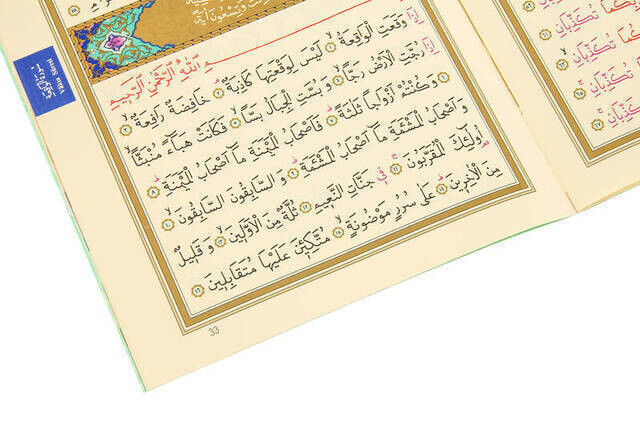 وَتِسْعُونَ اٰيَةً
بِسْمِ اللّٰهِ الرَّحْمٰنِ الرَّحٖيمِ
اِذَا وَقَعَتِ الْوَاقِعَةُ ١ لَيْسَ لِوَقْعَتِهَا كَاذِبَةٌ ٢ خَافِضَةٌ رَافِعَةٌ ٣
اِذَا رُجَّتِ الْاَرْضُ رَجًّا ٤ وَبُسَّتِ الْجِبَالُ بَسًّا ٥ فَكَانَتْ هَبَٓاءً مُنْبَثًّا ٦
وَكُنْتُمْ اَزْوَاجًا ثَلٰثَةً ٧ فَاَصْحَابُ الْمَيْمَنَةِ مَٓا اَصْحَابُ الْمَيْمَنَةِ ٨
وَاَصْحَابُ الْمَشْـَٔمَةِ مَٓا اَصْحَابُ الْمَشْـَٔمَةِ ٩ وَالسَّابِقُونَ السَّابِقُونَ ١٠
اُو۬لٰٓئِكَ الْمُقَرَّبُونَ ١١ فٖي جَنَّاتِ النَّعٖيمِ ١٢ ثُلَّةٌ مِنَ الْاَوَّلٖينَ ١٣ وَقَلٖيلٌ
مِنَ الْاٰخِرٖينَ ١٤ عَلٰى سُرُرٍ مَوْضُونَةٍ ١٥ مُتَّكِـٖٔينَ عَلَيْهَا مُتَقَابِلٖينَ ١٦
33
Vâkıa Sûresi
تُكَذِّبَانِ
تُكَذِّبَانِ
تُكَذِّبَانِ
تُكَذِّبَانِ